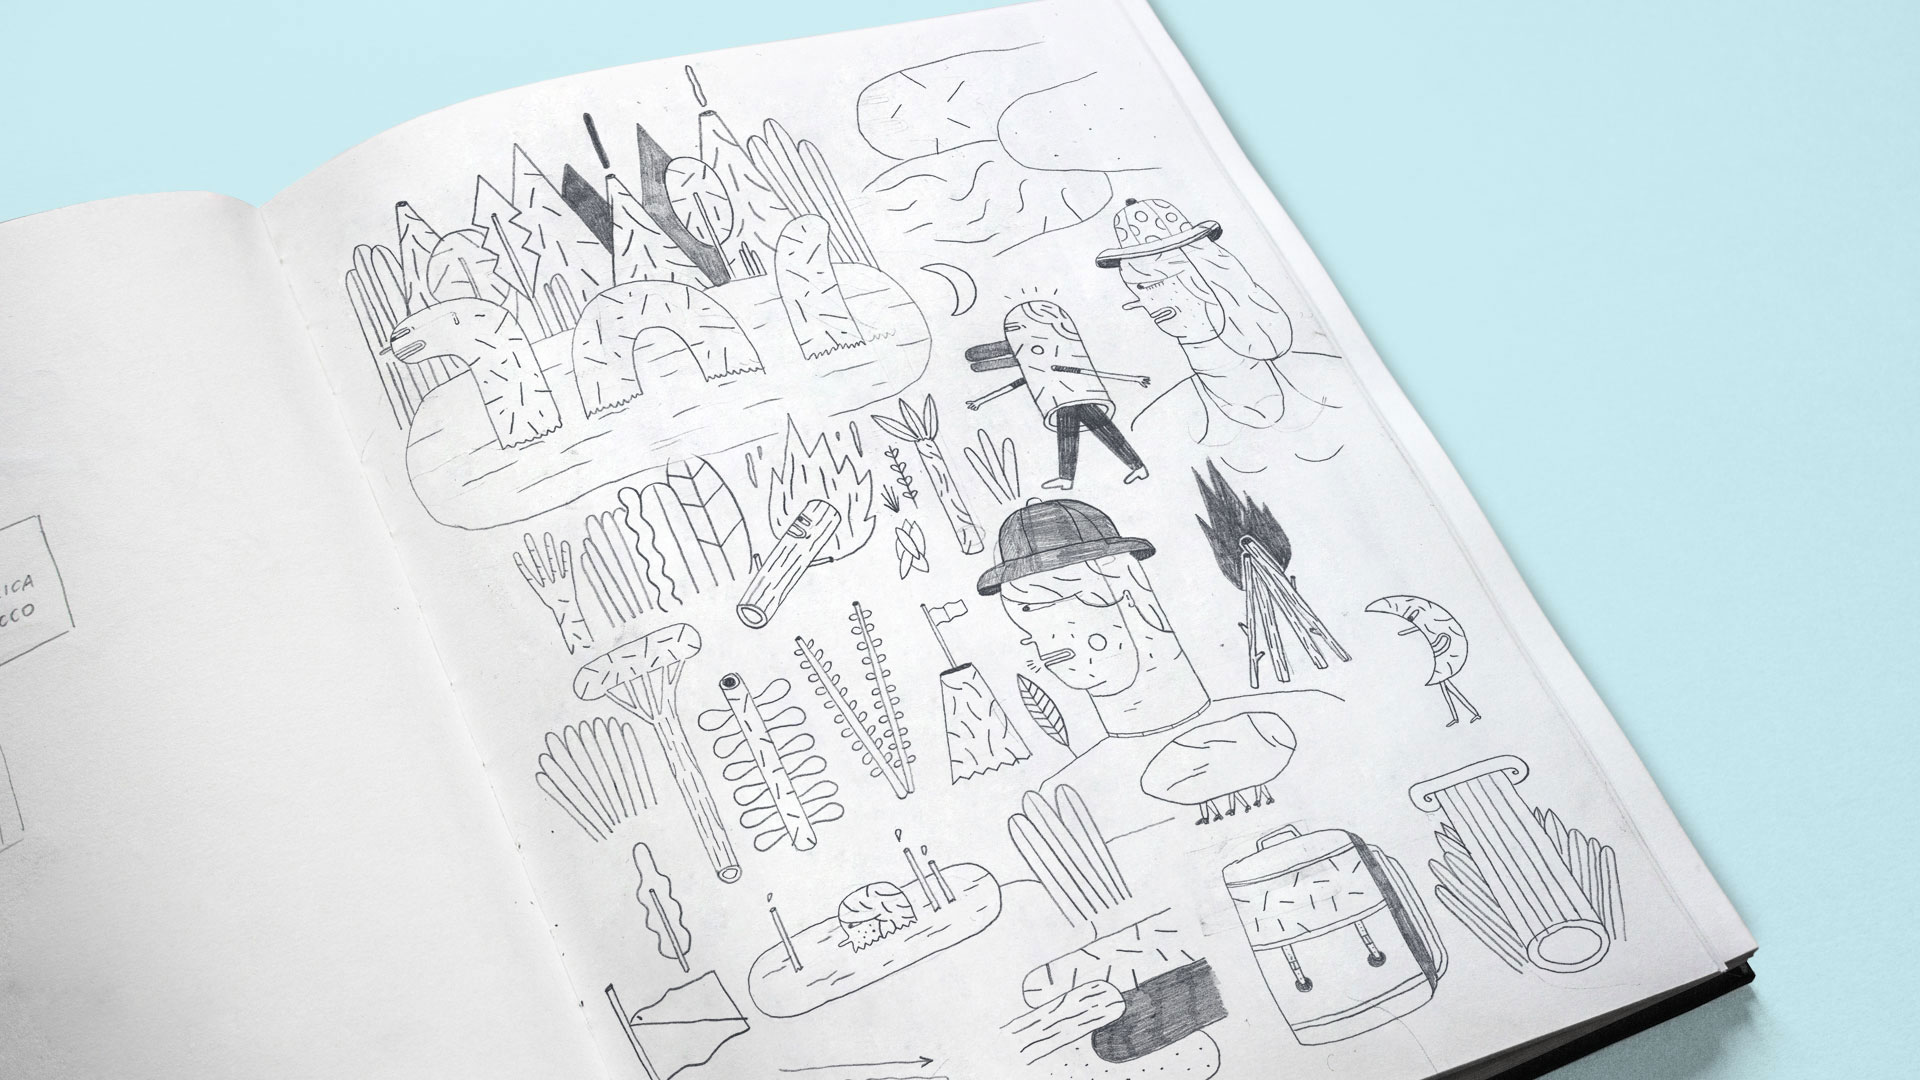 ICA
CCO